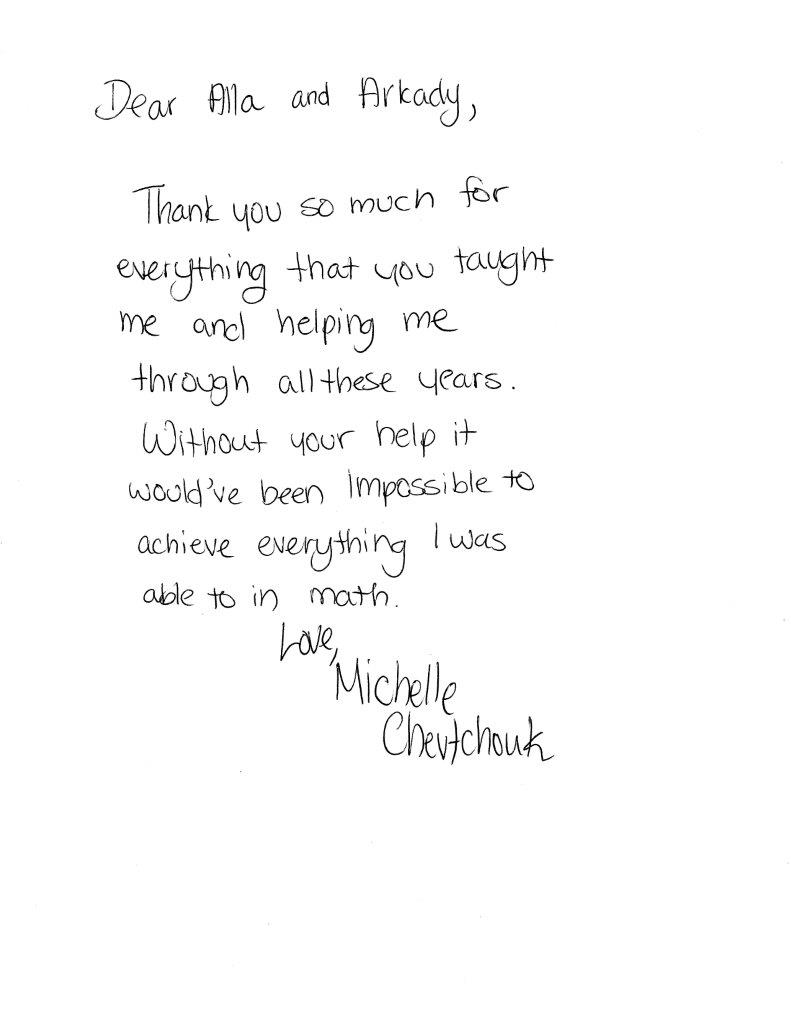 Dear Alla and Arkady,
Thank you so much for
everything that you taught
me and helping me
through all these years.
Without your help it
would've been Impossible to
achieve everything I was
able to in math.
Love,
Michelle
Chevtchouk